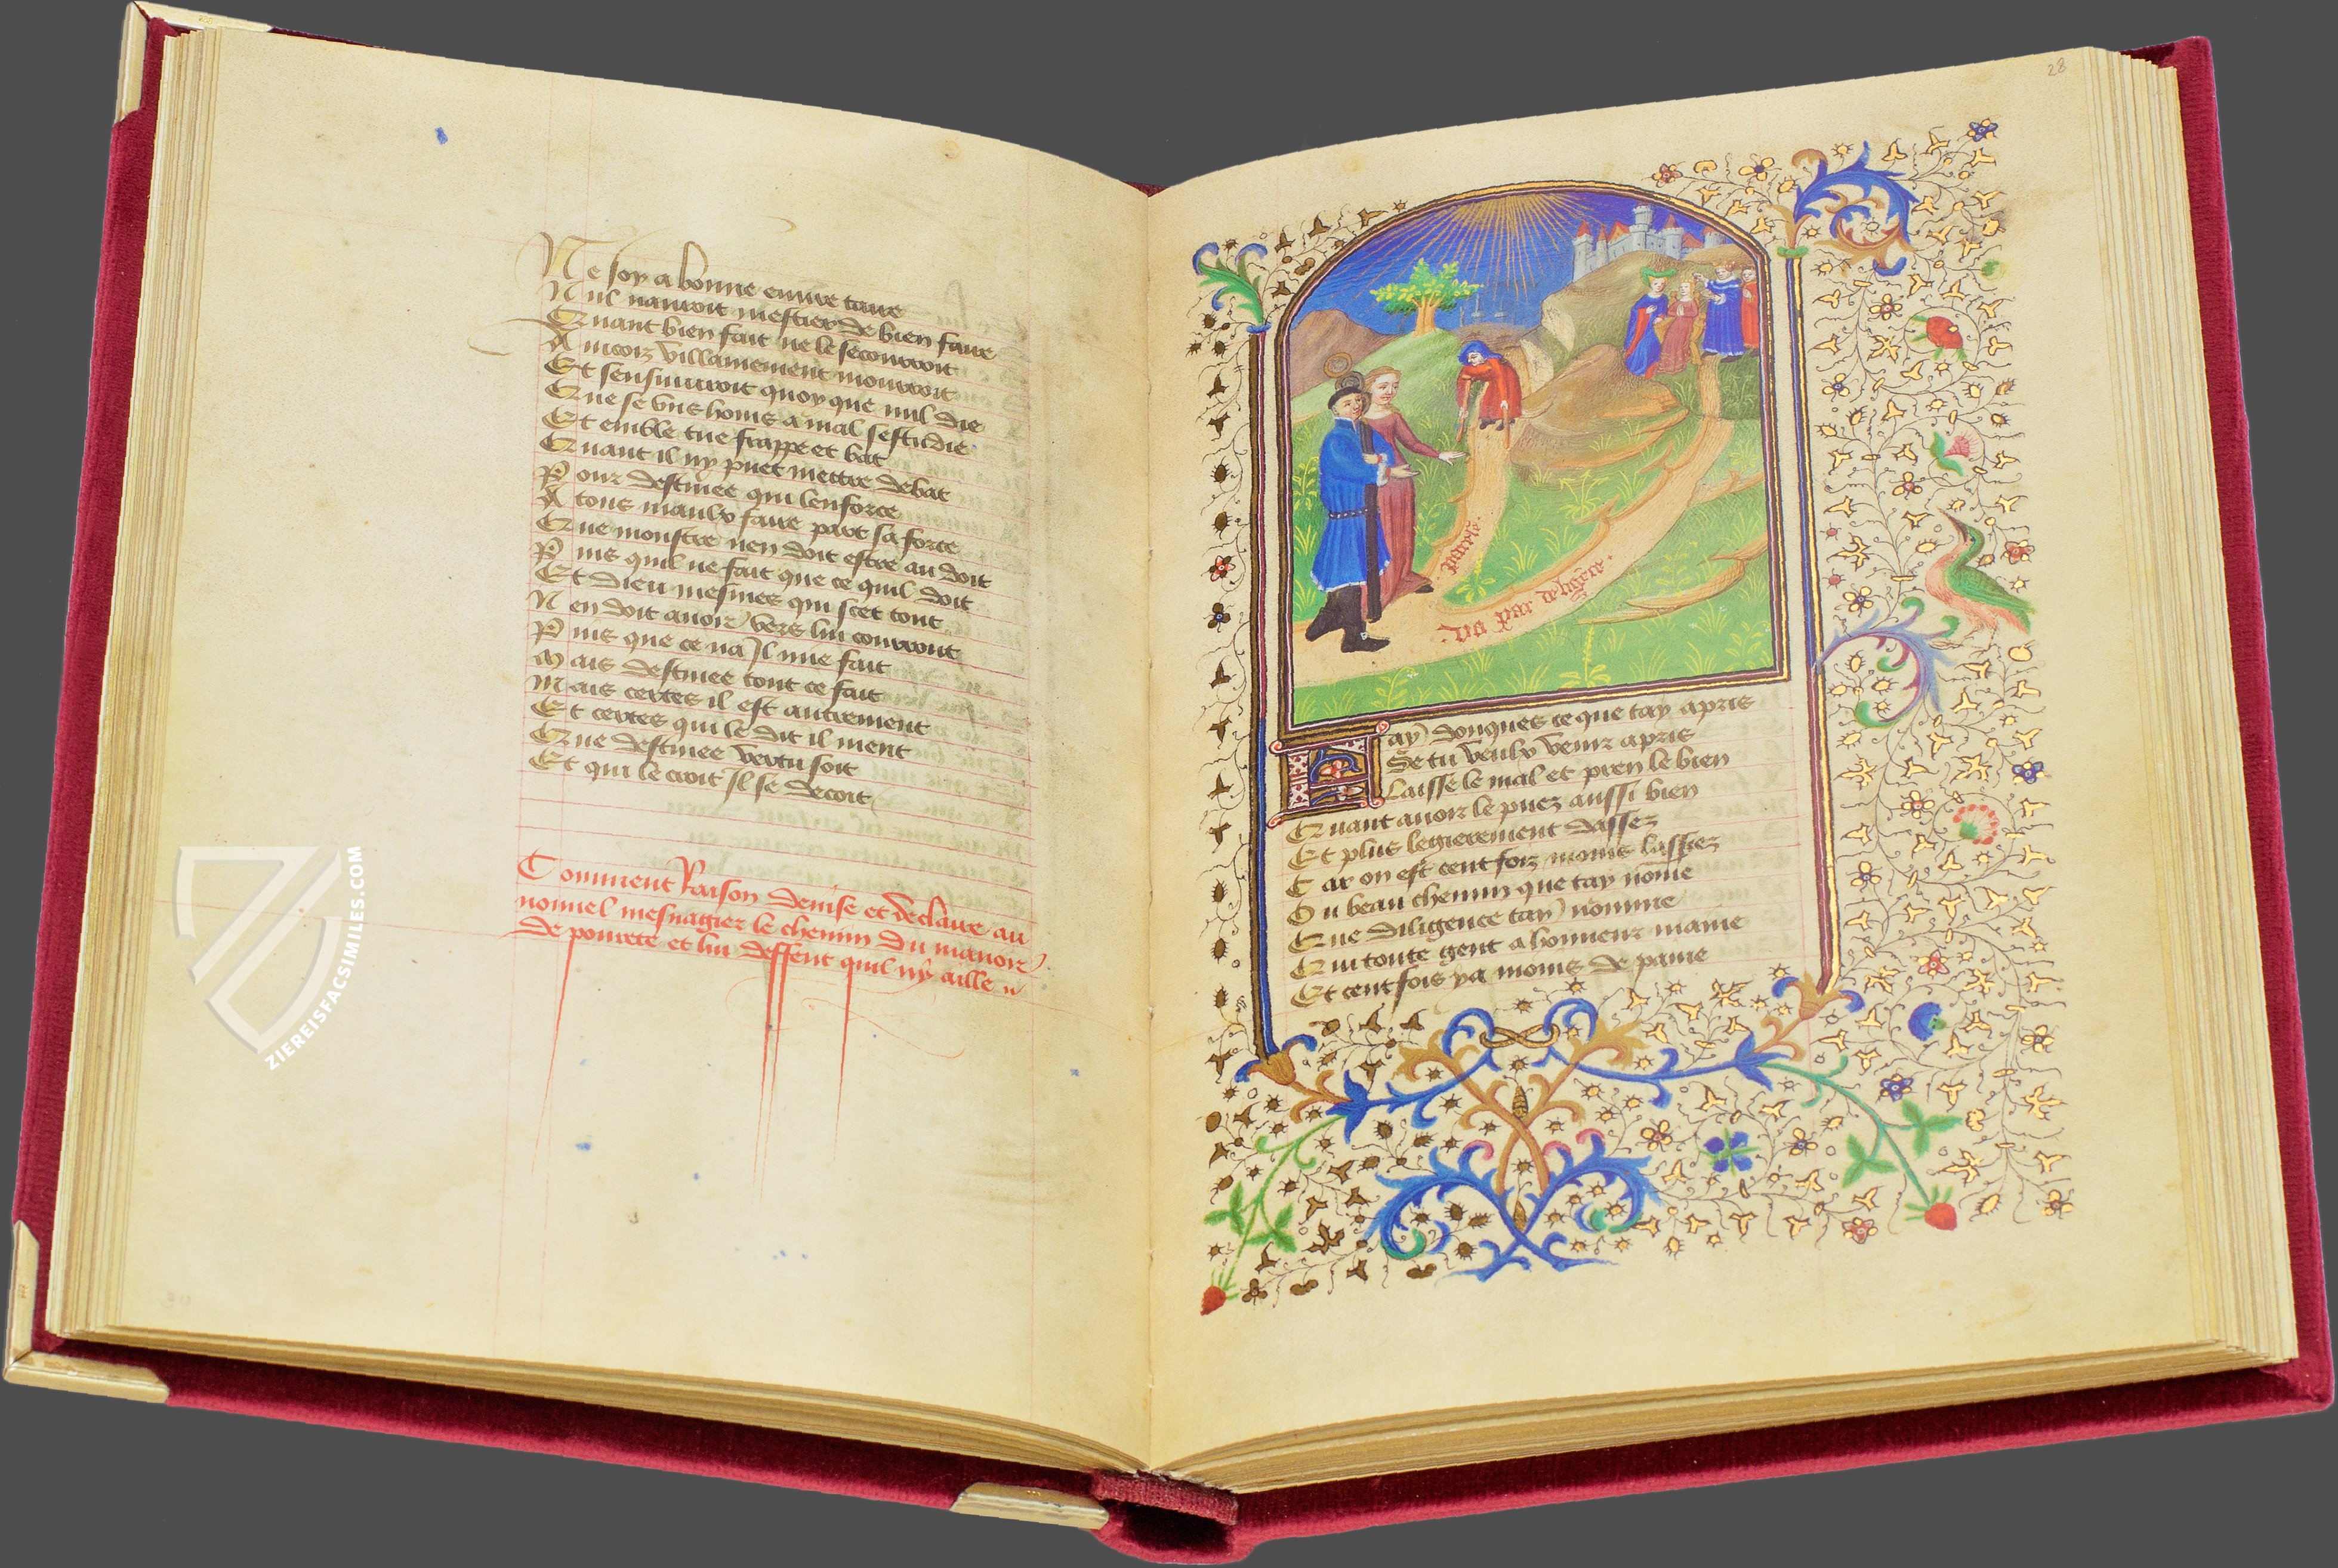 Ne soy a bonne euure taire
Nul nauroit mestier de bien faire
Quant bien fait ne le secourroit
Aincois villainement mourroit
Et sensuiuroit quoy que nul die
Que se vns homs a mal sestudie
Et emble tue frappe et bat
Quant il ny puet mettre debat
Pour destinee qui lenforce
A tous maulx faire par sa force
Que monstre nen doit estre au doit
Puis quil ne fait que ce quil doit
Et dieu mesmes qui scet tout
Nen doit auoir vers lui courrout
Puis que ce na Il mie fait
Mais destinee tout ce fait
Mais certes il est autrement
Et certes qui le dit il ment
Que destinee vertu soit
Et qui le croit Il se decoit
Comment Raison deuise et declaire au
nouuel mesnagier le chemin du manoir
de pourete et lui deffent quil ny aille
ZIEREISFACSIMILES.COM
28
Va par deligēce.
Fay donques ce que tay apris
Se tu veulx venir a pris
Laisse le mal et pren le bien
Quant auoir le puez aussi bien
Et plus legierement dassez
Car on est cent foiz moins lassez
Ou beau chemin que tay nōme
Que diligence tay nomme
Qui toute gent a honneur maine
Et cent fois ya moins de paine